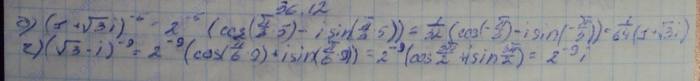 36.12
в) (1+√3i)^-5 = 2^-5 (cos(π/3·5) - i sin(π/3·5)) = 1/32 (cos(-π/3) - i sin(-π/3)) = 1/64 (1+√3i)
г) (√3-i)^-9 = 2^-9 (cos(π/6·9) + i sin(π/6·9)) = 2^-9 (cos 3π/2 + i sin 3π/2) = 2^-9 i